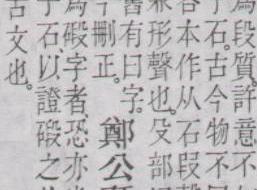 爲段質許意不
于石古今物不
本作从石叚聲
兼形聲也殳部
舊有曰字
刪正。鄭公
爲碫字者恐亦
于石以證碫之
古文也。